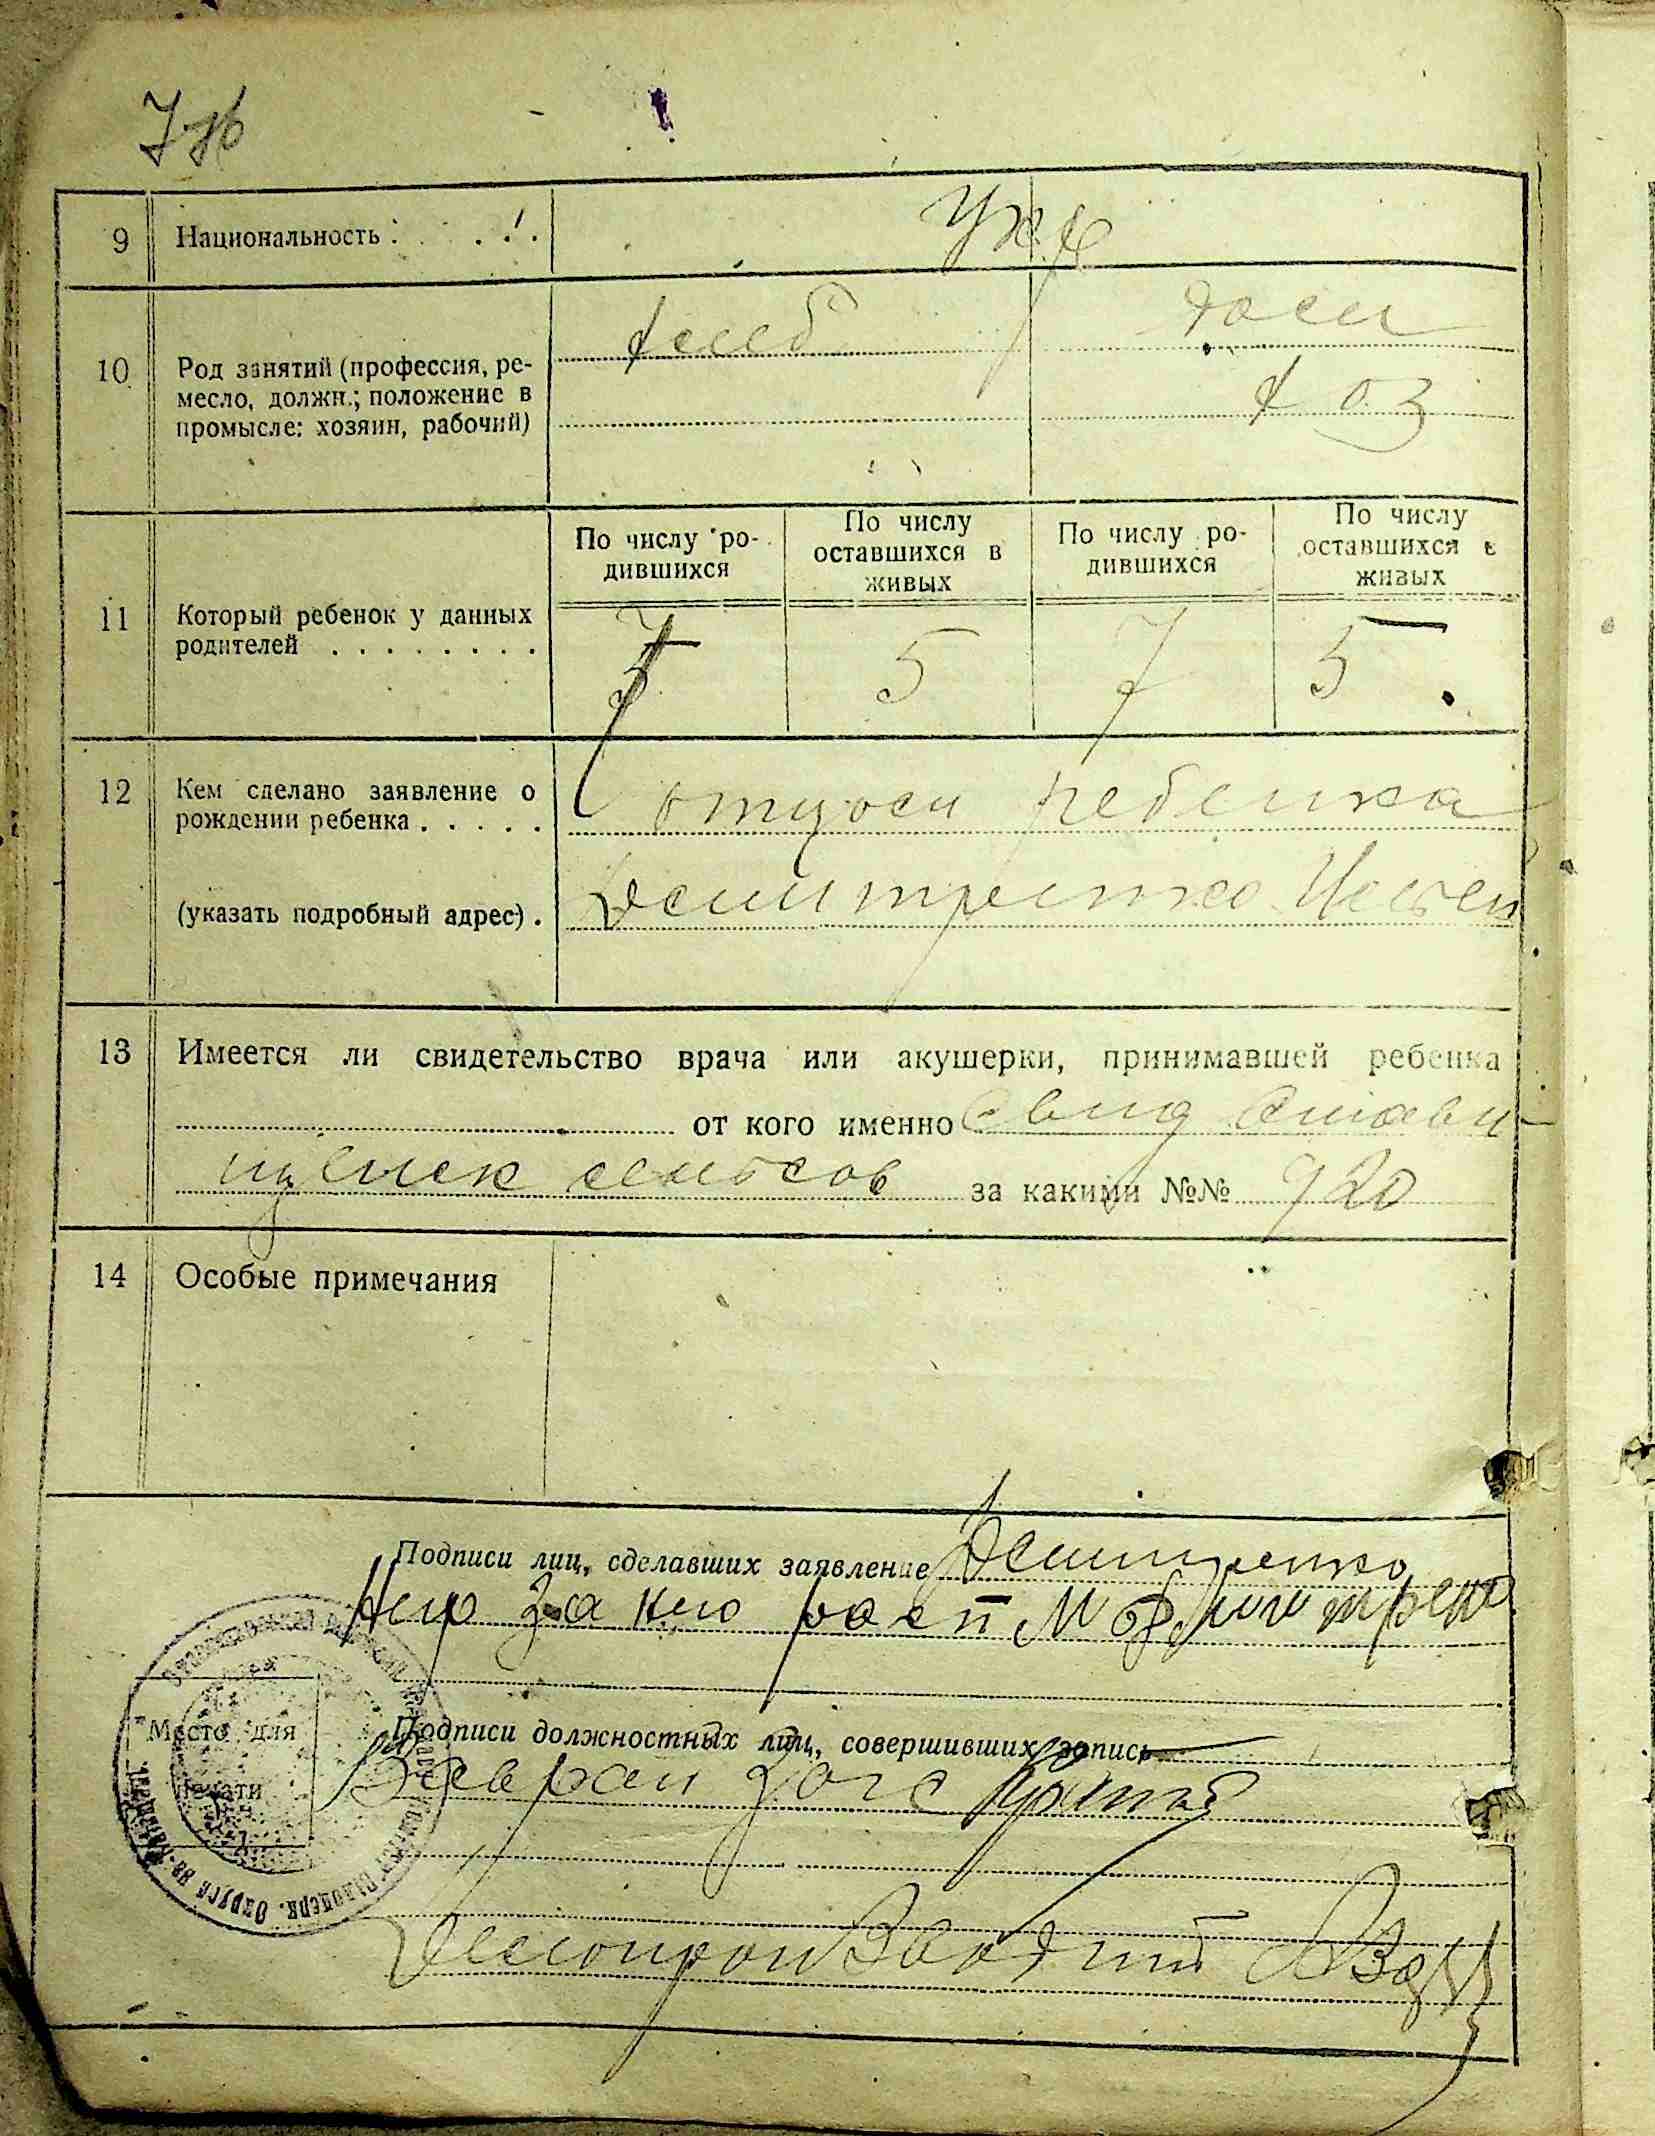 9 Национальность
Укр
10 Род занятий (профессия, ре-
месло, должн.; положение в
промысле: хозяин, рабочий)
хлеб
дом
хоз
11 Который ребенок у данных
родителей
По числу ро-
дившихся
По числу
оставшихся в
живых
По числу ро-
дившихся
По числу
оставшихся в
живых
7 5 7 5
12 Кем сделано заявление о
рождении ребенка
отцом ребенка
(указать подробный адрес).
Дмитренко
13 Имеется ли свидетельство врача или акушерки, принимавшей ребенка
от кого именно Свид Стави
щанск сельсов за какими №№ 920
14 Особые примечания
Подписи лиц, сделавших заявление Дмитренко
Негр за кого расп М Дмитренко
Место для
печати
Подписи должностных лиц, совершивших запись
Делопроизводит